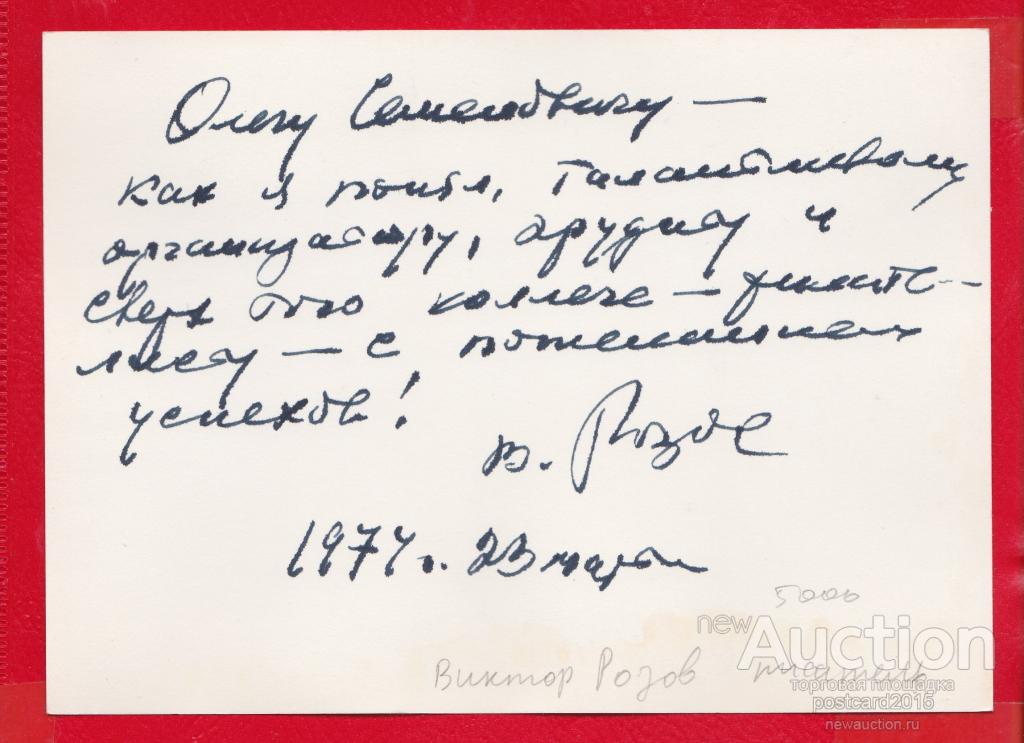 Олегу Семеновичу —
как я понял, талантливому
организатору, эрудиту и
сверх того коллеге —
листу — с пожеланием
успехов!
В. Розов
1974 г. 23 марта
5000
Виктор Розов писатель
newAuction
торговая площадка
postcard2015
newauction.ru